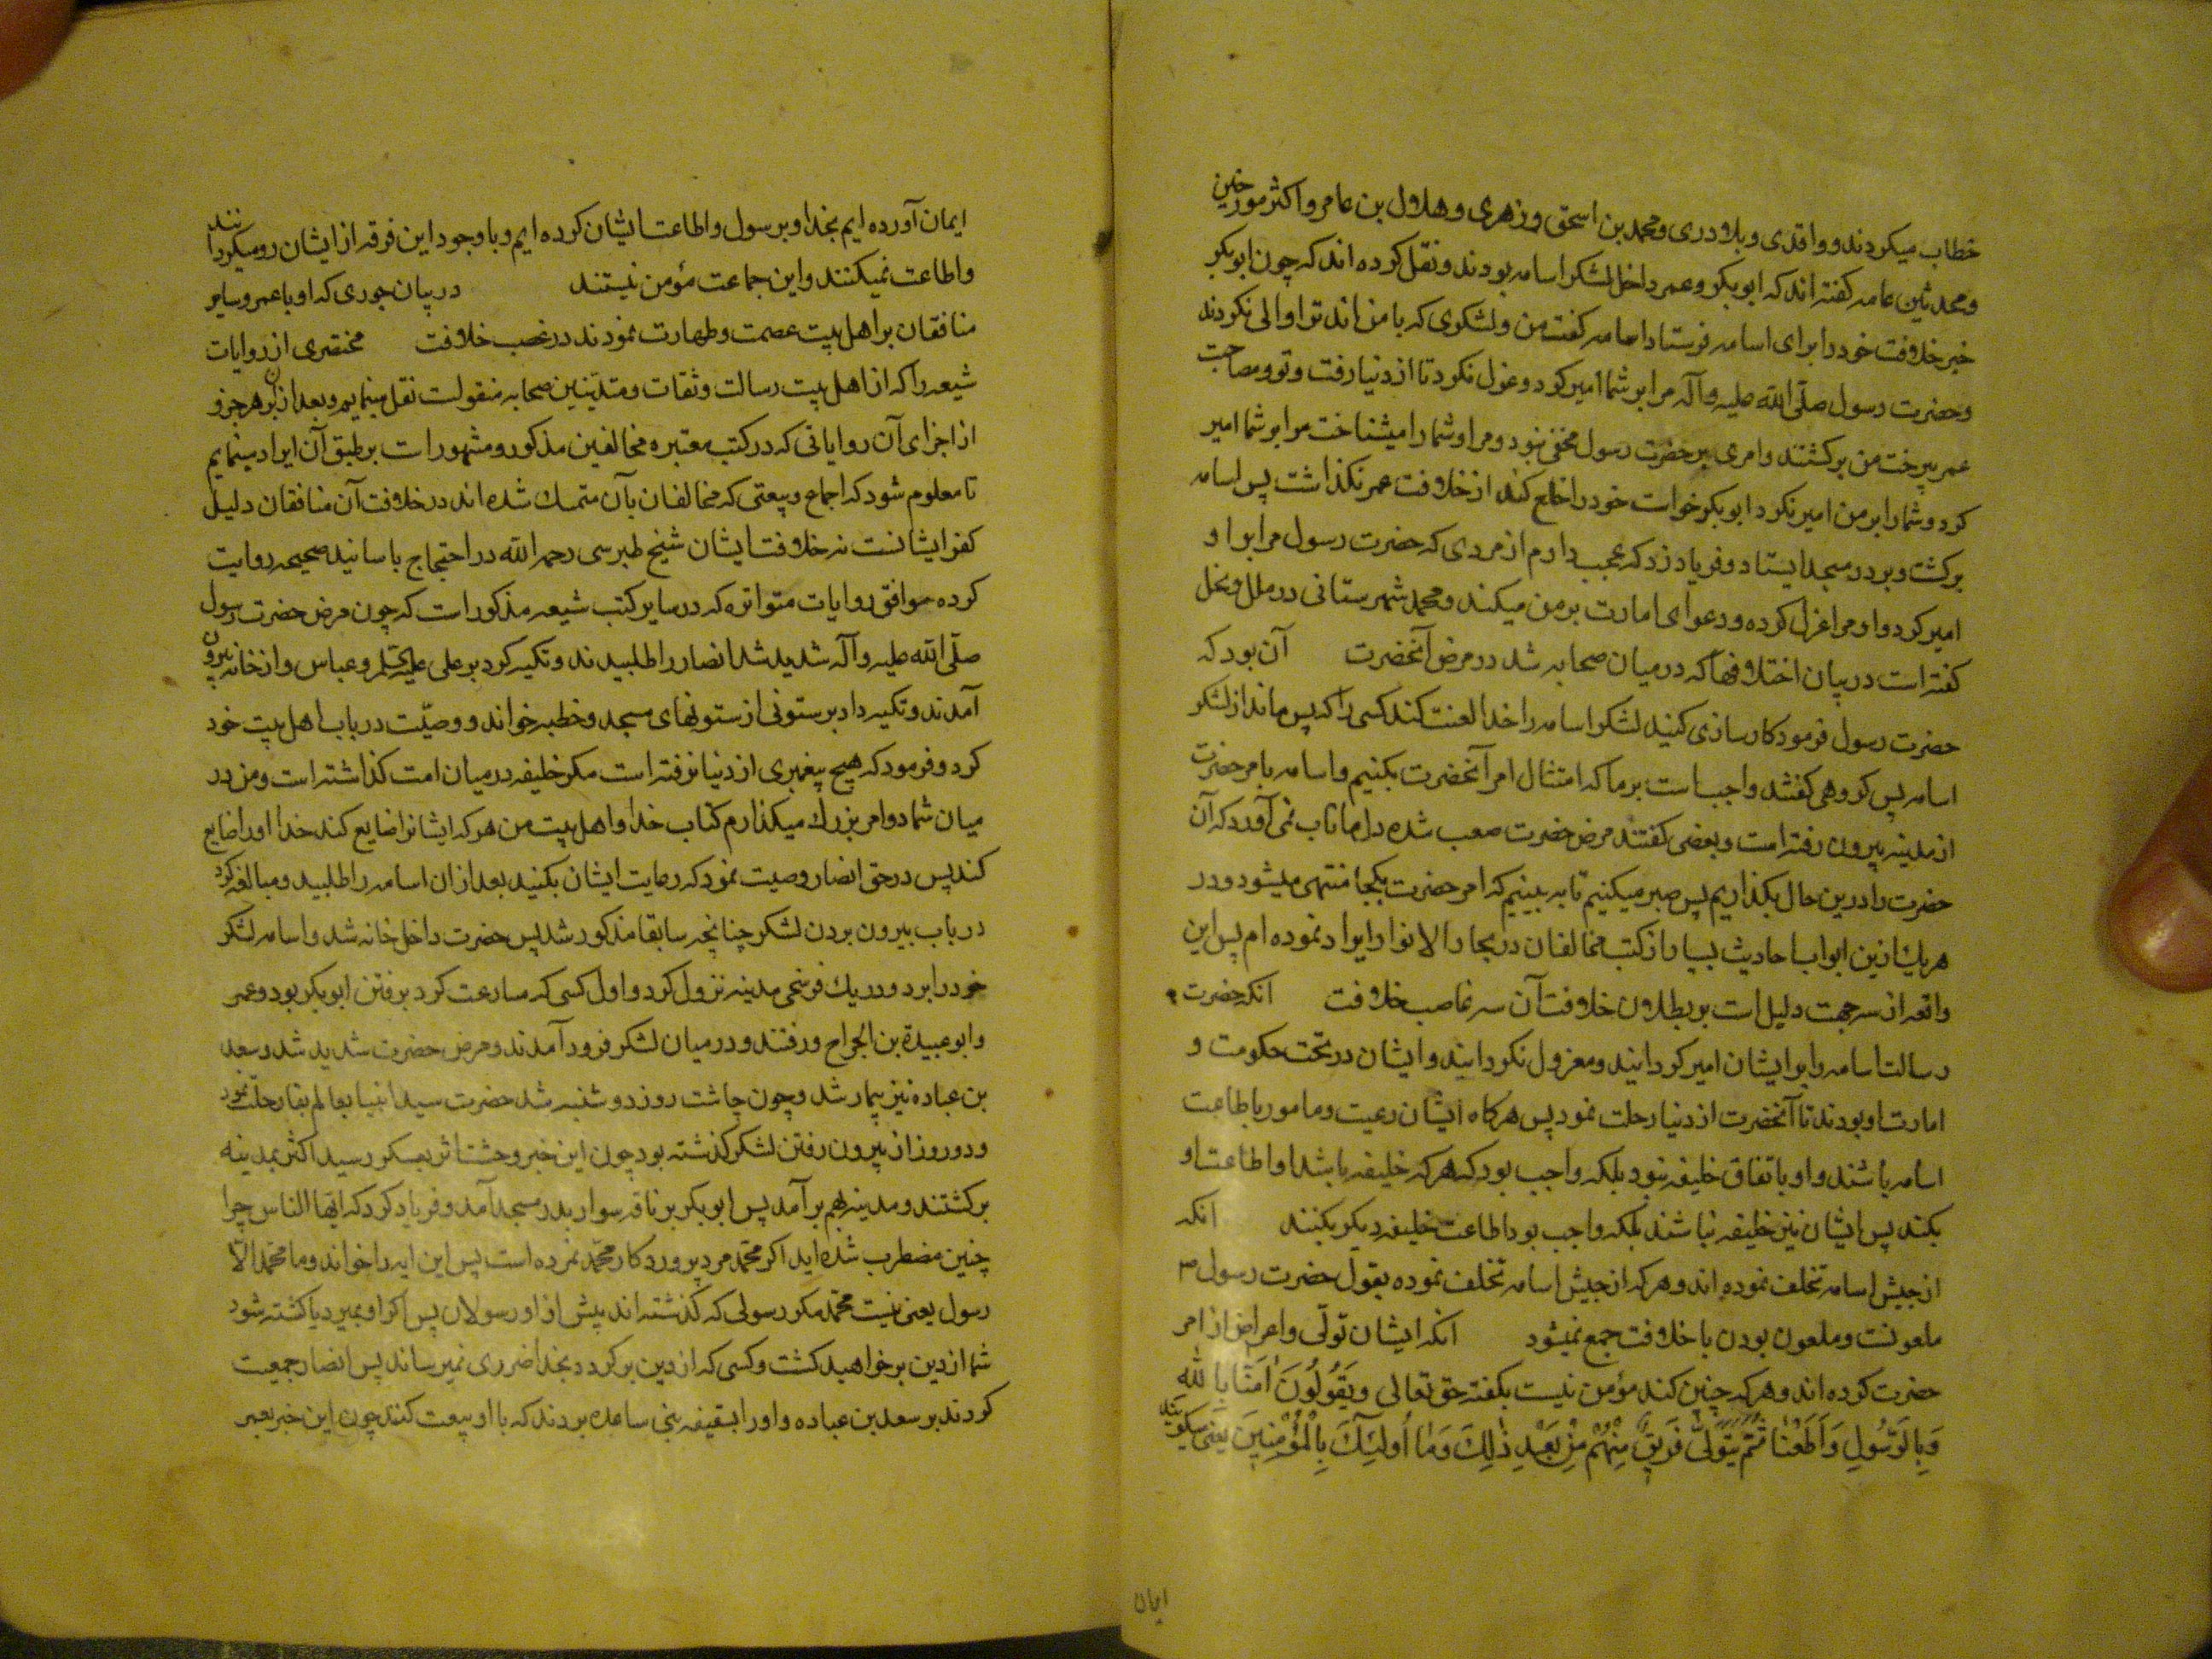 خطاب میکردند و واقدی و بلادری و محمد بن اسحق و زهری و هلال بن عامر و اکثر مورخین
و محدثین عامه کفته اند که ابوبکر و عمر داخل لشکر اسامه بودند و نقل کرده اند که چون ابوبکر
خبر خلافت خود را برای اسامه فرستاد اسامه کفت من و لشکری که با من اند ترا والی نکردند
و حضرت رسول صلّی اللّه علیه و آله مرا بر شما امیر کرد و عزل نکرد تا از دنیا رفت و تو و مصاحبت
عمر بیرخت من برکشتند و امری بر حضرت رسول مخفی نبود و مرا و شما را میشناخت مرا بر شما امیر
کرد و شما را بر من امیر نکرد ابوبکر خواست خود را خلع کند از خلافت عمر نکذاشت پس اسامه
برکشت و بر در مسجد ایستاد و فریاد زد که عجب دارم از مردی که حضرت رسول مرا بر او
امیر کرد و او مرا عزل کرده و دعوای امارت بر من میکند و محمد شهرستانی در ملل و نحل
کفته است در بیان اختلافها که در میان صحابه شد در مرض آنحضرت آن بود که
حضرت رسول فرمود کارسازی کنید لشکر اسامه را خدا لعنت کند کسی را که پس ماند از لشکر
اسامه پس کروهی کفتند واجب است بر ما که امتثال امر آنحضرت بکنیم و اسامه بامر حضرت
از مدینه بیرون رفته است و بعضی کفتند مرض حضرت صعب شده دل ما تاب نمی آورد که آن
حضرت را در این حال بکذاریم پس صبر میکنیم تا به بینیم که امر حضرت بکجا منتهی میشود و در
هر یک ازین ابواب احادیث بسیار از کتب مخالفان در بحار الانوار ایراد نموده ام پس این
واقعه از سه جهت دلیل است بر بطلان خلافت آن سه غاصب خلافت انکه حضرت
رسالت اسامه را بر ایشان امیر کردانید و معزول نکردانید و ایشان در تحت حکومت و
امارت او بودند تا آنحضرت از دنیا رحلت نمود پس هرکاه ایشان رعیت و مامور باطاعت
اسامه باشند و او باتفاق خلیفه نبود بلکه واجب بود که هر که خلیفه باشد او اطاعت او
بکند پس ایشان نیز خلیفه نباشند بلکه واجب بود اطاعت خلیفه دیکر بکنند انکه
از جیش اسامه تخلف نموده اند و هر که از جیش اسامه تخلف نموده بقول حضرت رسول ص
ملعونست و ملعون بودن با خلافت جمع نمیشود انکه ایشان تولّی و اعراض از امر
حضرت کرده اند و هر که چنین کند مؤمن نیست بکفته حق تعالی وَيَقُولُونَ آمَنَّا بِاللّهِ
وَبِالرَّسُولِ وَاَطَعْنَا ثُمَّ يَتَوَلَّى فَرِيقٌ مِنْهُمْ مِنْ بَعْدِ ذٰلِكَ وَمَا أُولٰئِكَ بِالْمُؤْمِنِينَ یعنی میکویند
ایمان
ایمان آورده ایم بخدا و برسول و اطاعت ایشان کرده ایم و باوجود این فرقه از ایشان رو میکردانند
و اطاعت نمیکنند و این جماعت مؤمن نیستند در بیان جوری که او با عمر و سایر
منافقان بر اهل بیت عصمت و طهارت نمودند در غصب خلافت مختصری از روایات
شیعه را که از اهل بیت رسالت و ثقات و متدیّنین صحابه منقولست نقل مینمایم و بعد از آن بر هر جزو
از اجزای آن روایاتی که در کتب معتبره مخالفین مذکور و مشهور است بر طبق آن ایراد مینمایم
تا معلوم شود که اجماع و بیعتی که مخالفان بآن متمسک شده اند در خلافت آن منافقان دلیل
کفر ایشانست نه خلافت ایشان شیخ طبرسی رحمه اللّه در احتجاج باسانید صحیحه روایت
کرده موافق روایات متواتره که در سایر کتب شیعه مذکور است که چون مرض حضرت رسول
صلّی اللّه علیه و آله شدید شد انصار را طلبیدند و تکیه کرد بر علی علیه السّلم و عباس و از خانه بیرون
آمدند و تکیه داد بر ستونی از ستونهای مسجد و خطبه خواند و وصیّت در باب اهل بیت خود
کرد و فرمود که هیچ پیغمبری از دنیا نرفته است مکر خلیفه در میان امت کذاشته است و من در
میان شما دو امر بزرک میکذارم کتاب خدا و اهل بیت من هر که ایشانرا ضایع کند خدا او را ضایع
کند پس در حق انصار وصیت نمود که رعایت ایشان بکنید بعد از ان اسامه را طلبید و مبالغه کرد
در باب بیرون بردن لشکر چنانچه سابقا مذکور شد پس حضرت داخل خانه شد و اسامه لشکر
خود را برد و در یک فرسخی مدینه نزول کرد و اول کسی که مسارعت کرد برفتن ابوبکر بود و عمر
و ابو عبیدة بن الجراح و رفتند و در میان لشکر فرود آمدند و مرض حضرت شدید شد و سعد
بن عباده نیز بیمار شد و چون چاشت روز دوشنبه شد حضرت سید انبیا بعالم بقا رحلت نمود
و دو روز از بیرون رفتن لشکر کذشته بود چون این خبر وحشت اثر بعسکر رسید اکثر بمدینه
برکشتند و مدینه بهم برآمد پس ابوبکر بر ناقه سوار بدر مسجد آمد و فریاد کرد که ایّها الناس چرا
چنین مضطرب شده اید اکر محمّد مرد پروردکار محمّد نمرده است پس این ایه را خواند وما محمّد الّا
رسول یعنی نیست محمّد مکر رسولی که کذشته اند پیش از او رسولان پس اکر او بمیرد یا کشته شود
شما از دین برخواهید کشت و کسی که از دین برکردد بخدا ضرری نمیرساند پس انصار جمعیت
کردند بر سعد بن عباده و او را بسقیفه بنی ساعده بردند که با او بیعت کنند چون این خبر بعمر